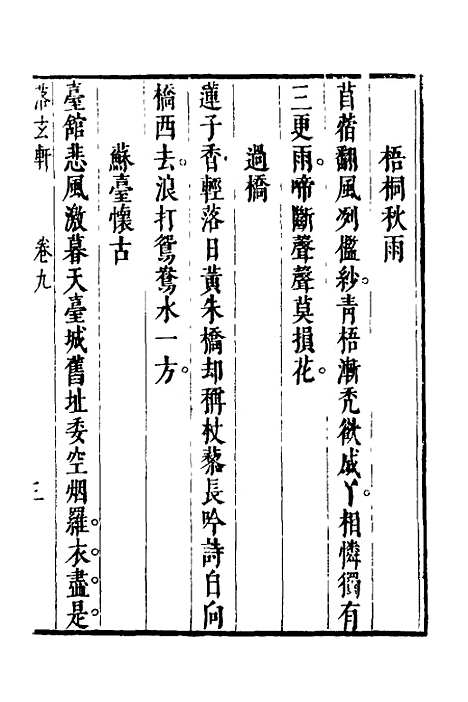 梧桐秋雨
苜蓿翻風冽儖紗青梧漸禿欲成丫相憐獨有
三更雨啼斷聲聲莫損花
過橋
蓮子香輕落日黃朱橋却稱杖藜長吟詩自向
橋西去浪打鴛鴦水一方
蘇臺懷古
臺館悲風激暮天臺城舊址委空烟羅衣盡是
落玄軒 卷九 三